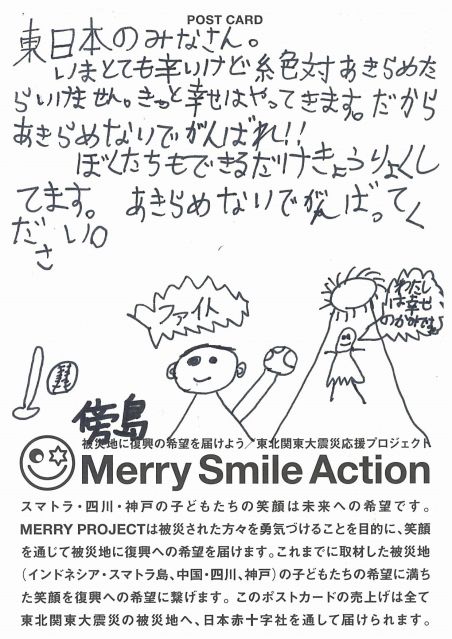 POST CARD
東日本のみなさん。
いまとても辛いけど絶対あきらめた
らいけません。きっと幸せはやってきます。だから
あきらめないでがんばれ!!
ぼくたちもできるだけきょうりょくし
てます。 あきらめないでがんばってく
ださい。
ファイト
わたし
は幸せ
のかみです。
傍島
被災地に復興の希望を届けよう/東北関東大震災応援プロジェクト
Merry Smile Action
スマトラ・四川・神戸の子どもたちの笑顔は未来への希望です。
MERRY PROJECTは被災された方々を勇気づけることを目的に、笑顔
を通じて被災地に復興への希望を届けます。これまでに取材した被災地
(インドネシア・スマトラ島、中国・四川、神戸)の子どもたちの希望に満ち
た笑顔を復興への希望に繋げます。このポストカードの売上げは全て
東北関東大震災の被災地へ、日本赤十字社を通して届けられます。